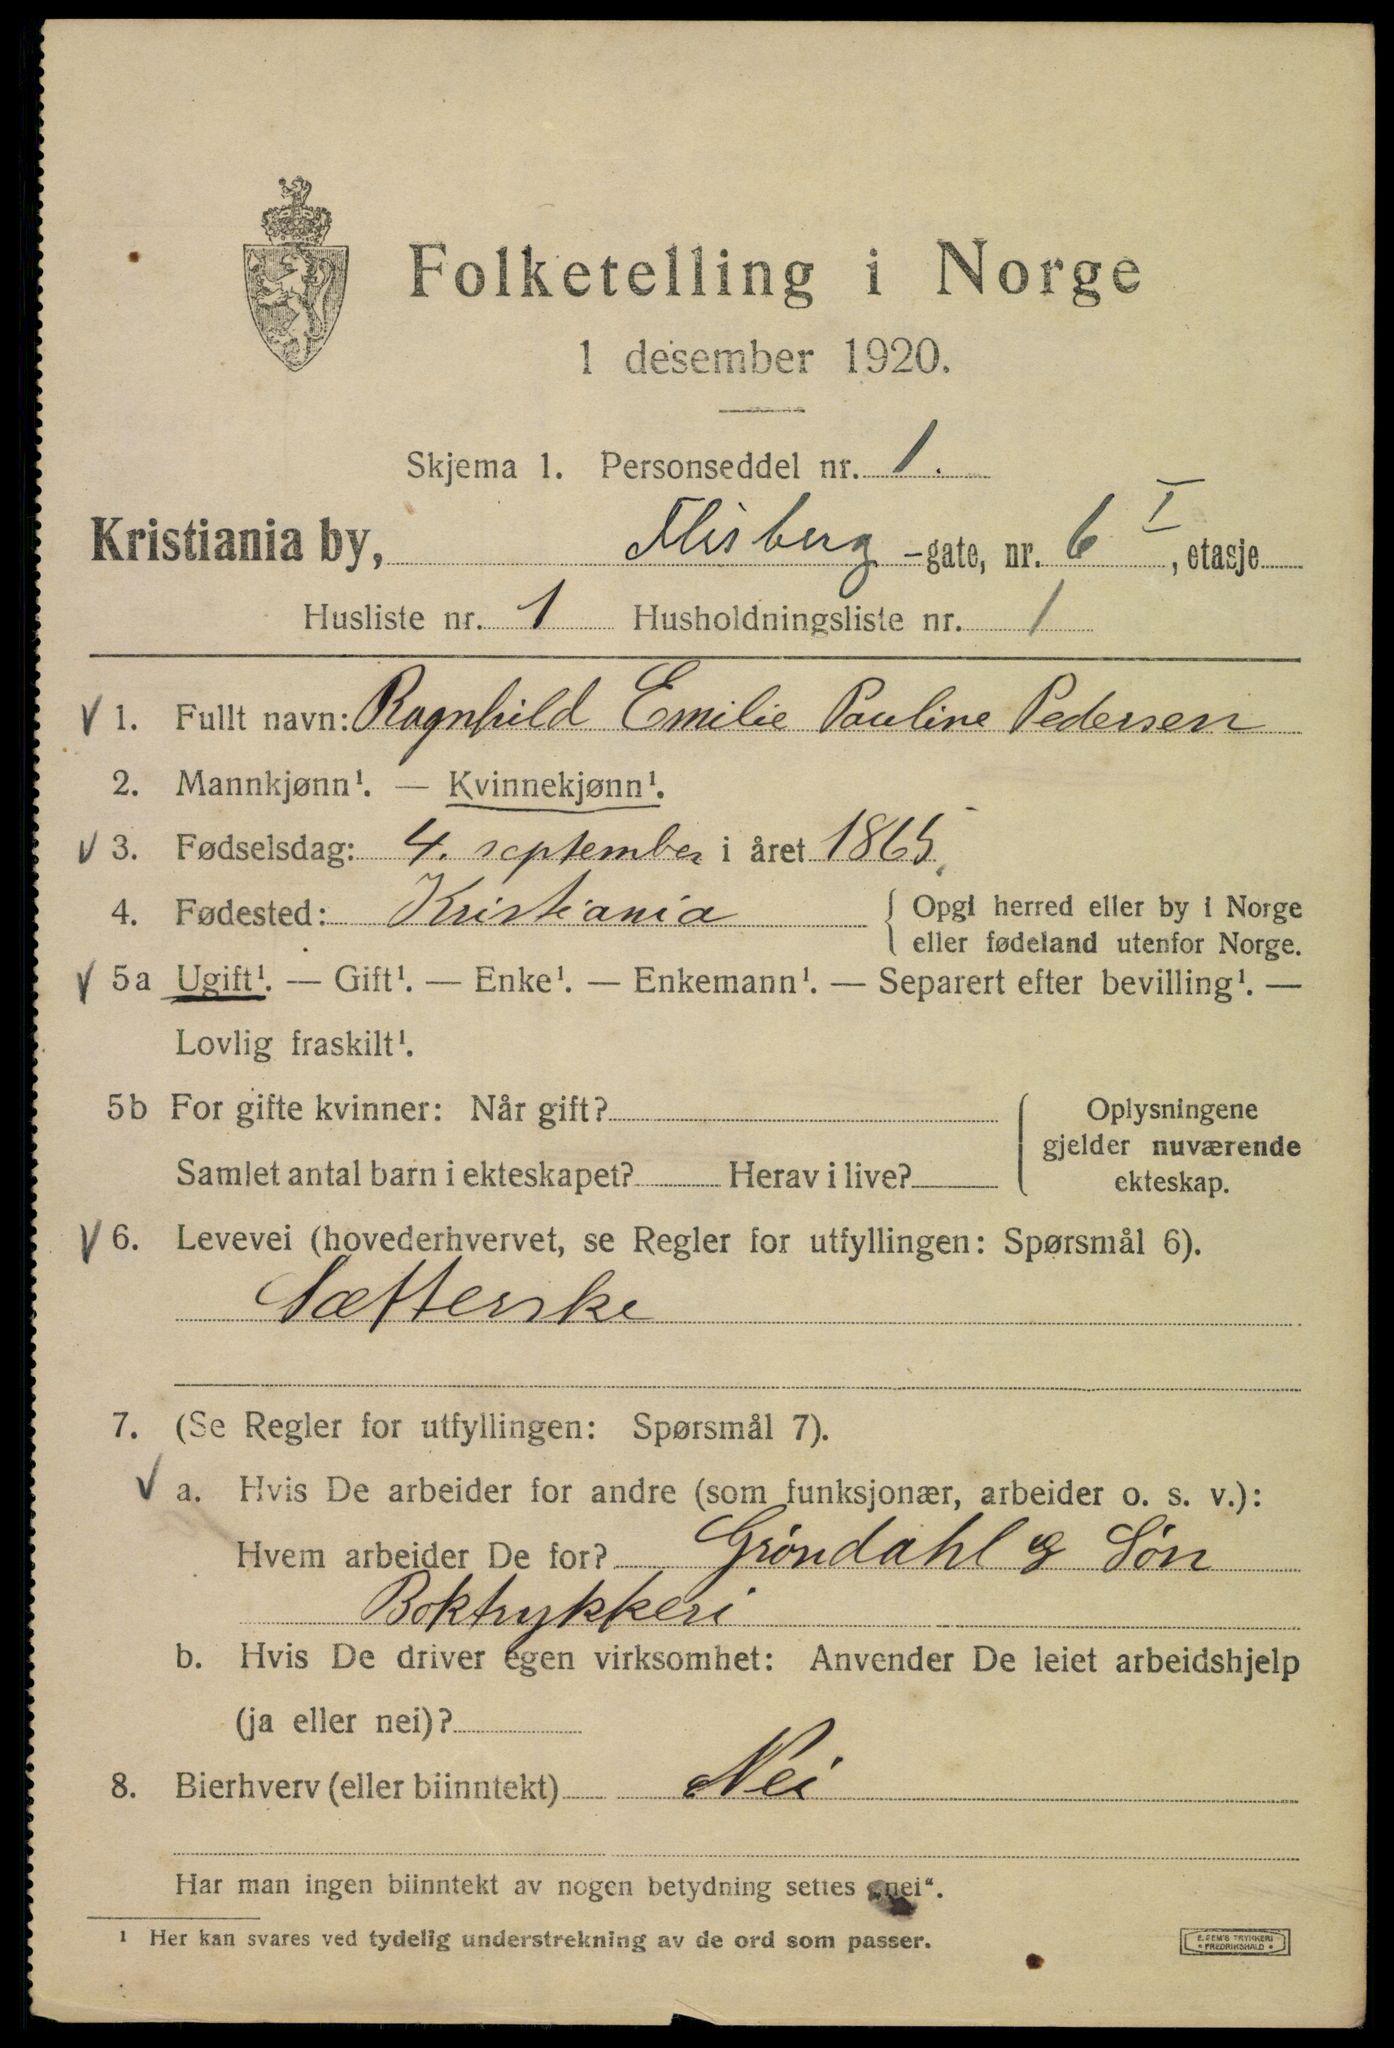 Folketelling i Norge
1 desember 1920.
Skjema 1. Personseddel nr. 1.
Kristiania by, Flisberg -gate, nr. 6 I, etasje
Husliste nr. 1 Husholdningsliste nr. 1
√ 1. Fullt navn: Ragnhild Emilie Pauline Pedersen
2. Mannkjønn¹. — Kvinnekjønn¹.
√ 3. Fødselsdag: 4. september i året 1865.
4. Fødested: Kristiania { Opgi herred eller by i Norge
eller fødeland utenfor Norge.
√ 5a Ugift¹. — Gift¹. — Enke¹. — Enkemann¹. — Separert efter bevilling¹. —
Lovlig fraskilt¹.
5b For gifte kvinner: Når gift?
Samlet antal barn i ekteskapet? Herav i live?
Oplysningene
gjelder nuværende
ekteskap.
√ 6. Levevei (hovederhvervet, se Regler for utfyllingen: Spørsmål 6).
Sætterske
7. (Se Regler for utfyllingen: Spørsmål 7).
√ a. Hvis De arbeider for andre (som funksjonær, arbeider o. s. v.):
Hvem arbeider De for? Grøndahl & Søn
Boktrykkeri
b. Hvis De driver egen virksomhet: Anvender De leiet arbeidshjelp
(ja eller nei)?
8. Bierhverv (eller biinntekt) Nei
Har man ingen biinntekt av nogen betydning settes „nei“.
¹ Her kan svares ved tydelig understrekning av de ord som passer.
E. SEM'S TRYKKERI
* FREDRIKSHALD *